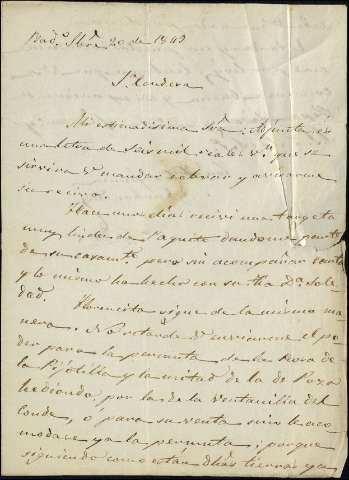 Bad.z 9bre 20 de 1849
Sra Condesa
Mi estimadisima Sra: Adjunta es
una letra de Seis mil reales v.n que se
servira V. mandar cobrar y avisarme
su recivo.
Hace unos dias recivi una targeta
muy linda de Paquita dandome parte
de su casamto pero sin acompañar carta
y lo mismo ha hecho con su tia Da Sole-
dad.
Florencita sigue de la misma ma-
nera. No retarde V. enviarme el po-
der para la permuta de la tierra de
la Pijotilla y la mitad de la de Poza
hedionda, por la de Ventanilla del
Conde, ó para su venta si no le aco-
modase ya la permuta; porque
siguiendo como están dhas tierras ya